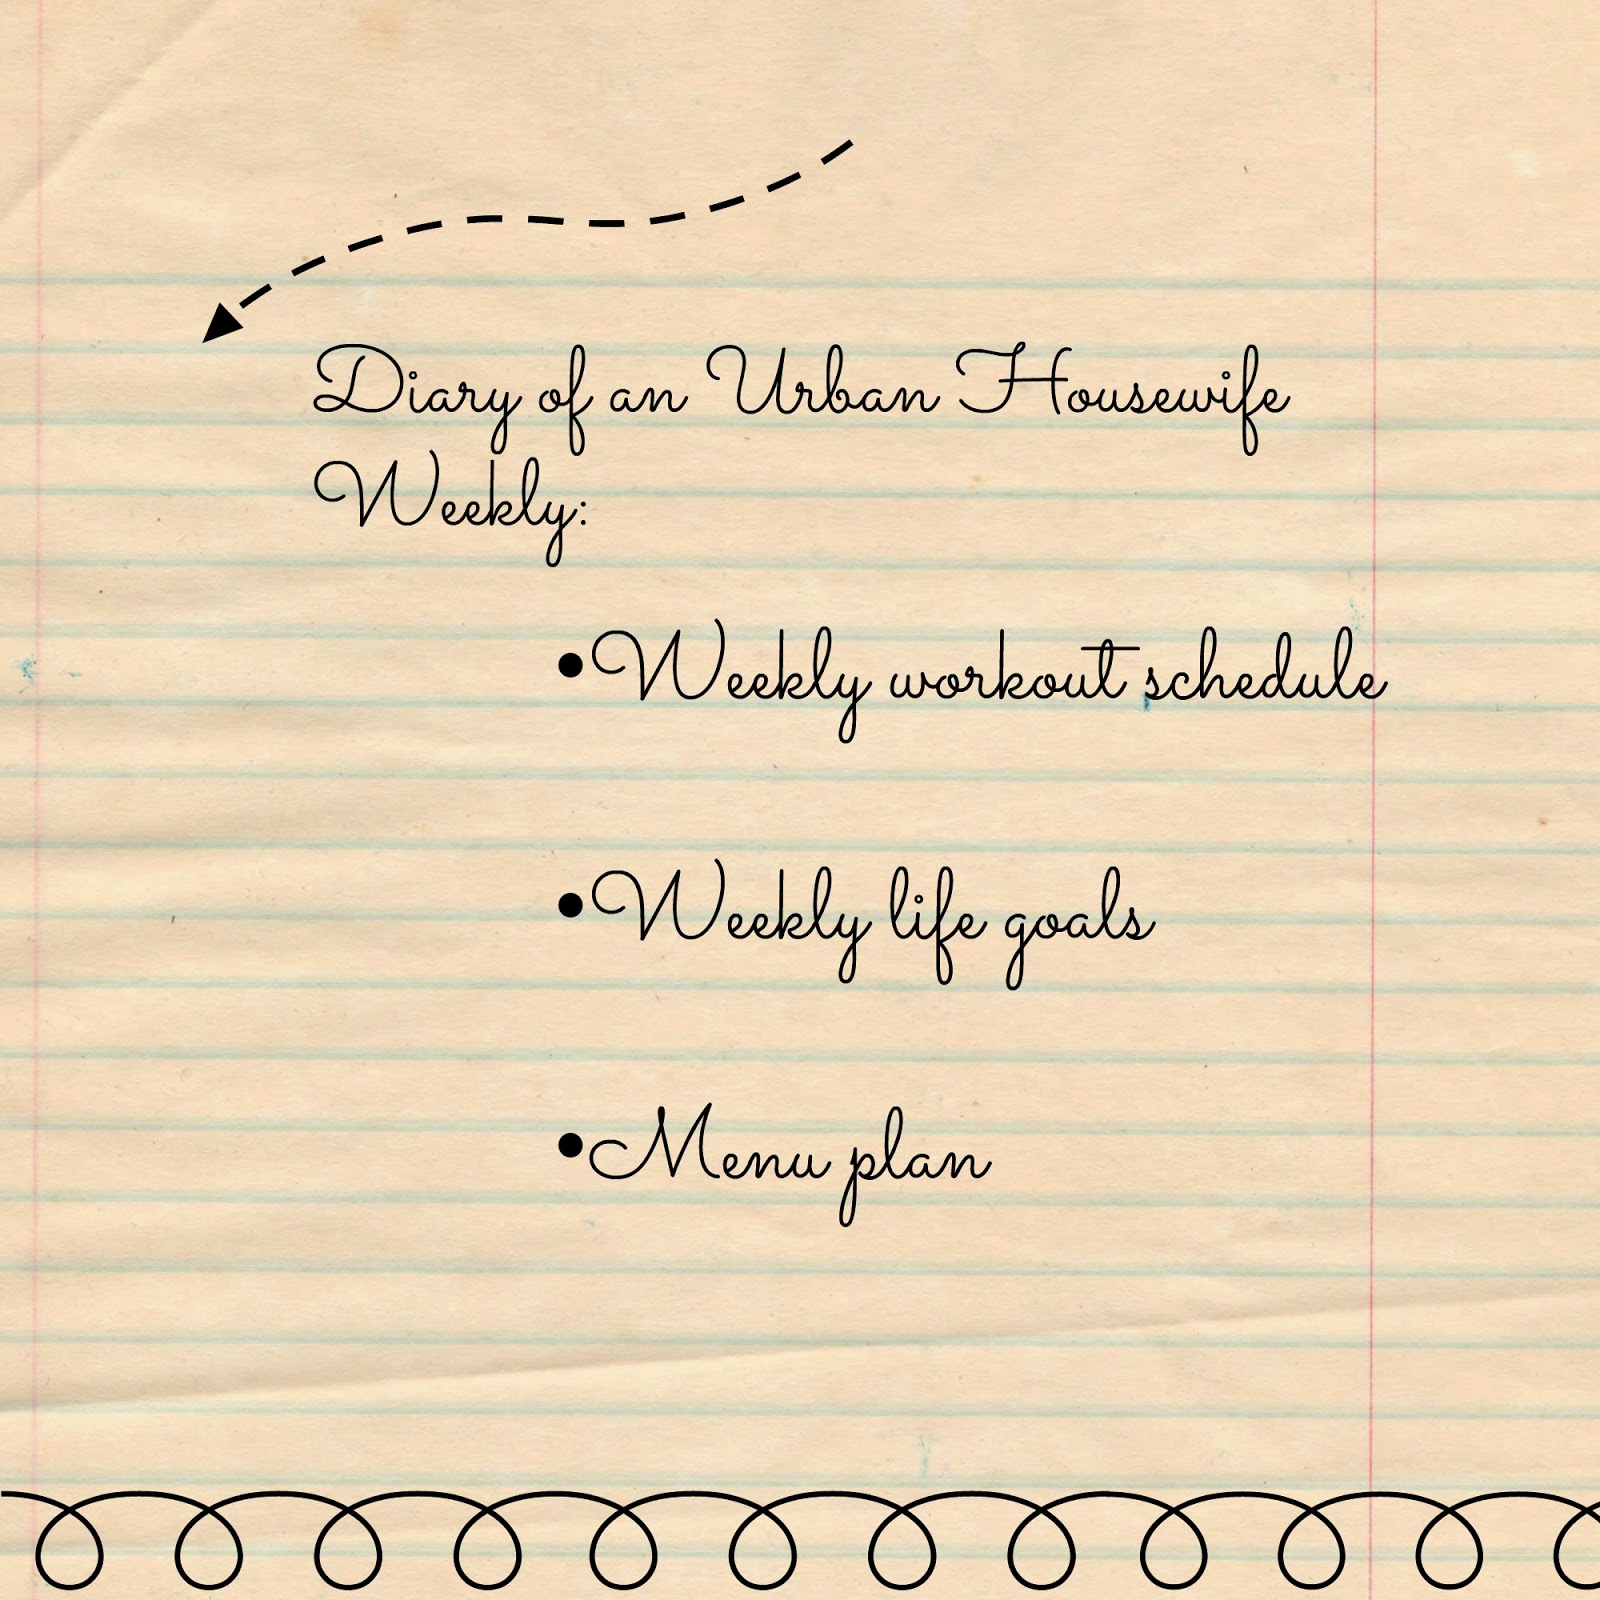 Diary of an Urban Housewife
Weekly:
•Weekly workout schedule
•Weekly life goals
•Menu plan